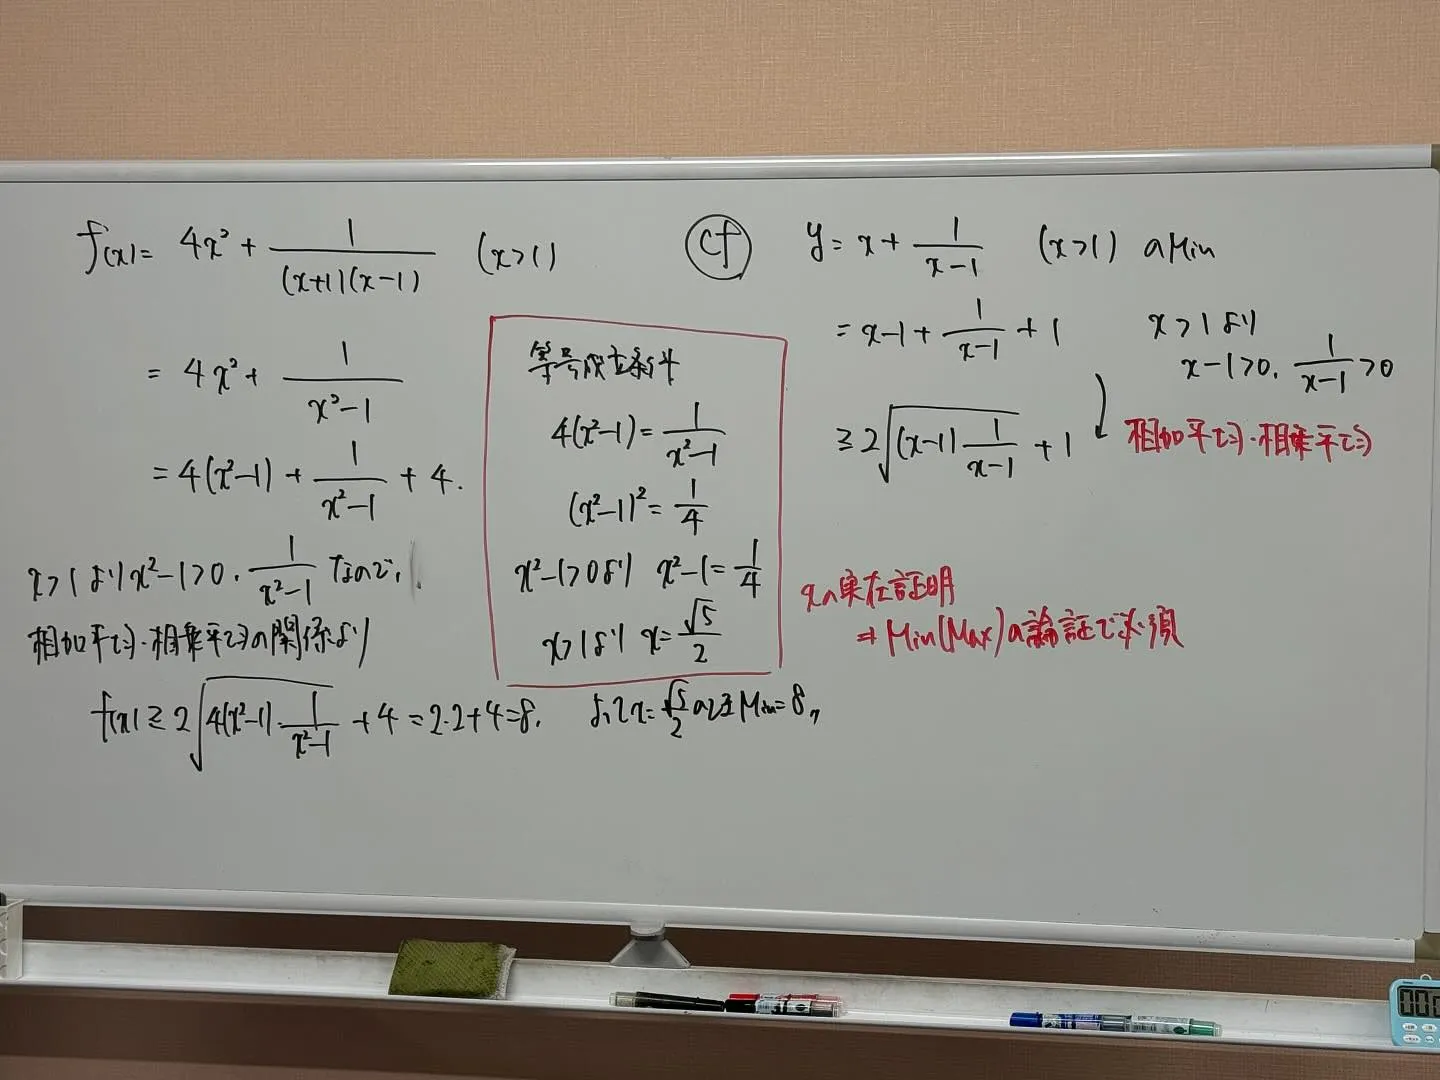 f(x) = 4x² + 1/((x+1)(x−1)) (x>1)
= 4x² + 1/(x²−1)
= 4(x²−1) + 1/(x²−1) + 4.
x>1より x²−1>0. 1/(x²−1) なので,
相加平均・相乗平均の関係より
f(x) ≧ 2√(4(x²−1)·1/(x²−1)) + 4 = 2·2+4=8.
等号成立条件
4(x²−1) = 1/(x²−1)
(x²−1)² = 1/4
x²−1>0より x²−1 = 1/4
x>1より x = √5/2
よってx=√5/2のとき Min=8〃
cf
y = x + 1/(x−1) (x>1) の Min
= x−1 + 1/(x−1) + 1
x>1より
x−1>0. 1/(x−1) >0
≧ 2√((x−1) 1/(x−1)) + 1
相加平均・相乗平均
xの実在証明
⇒ Min(Max)の論証で必須
000